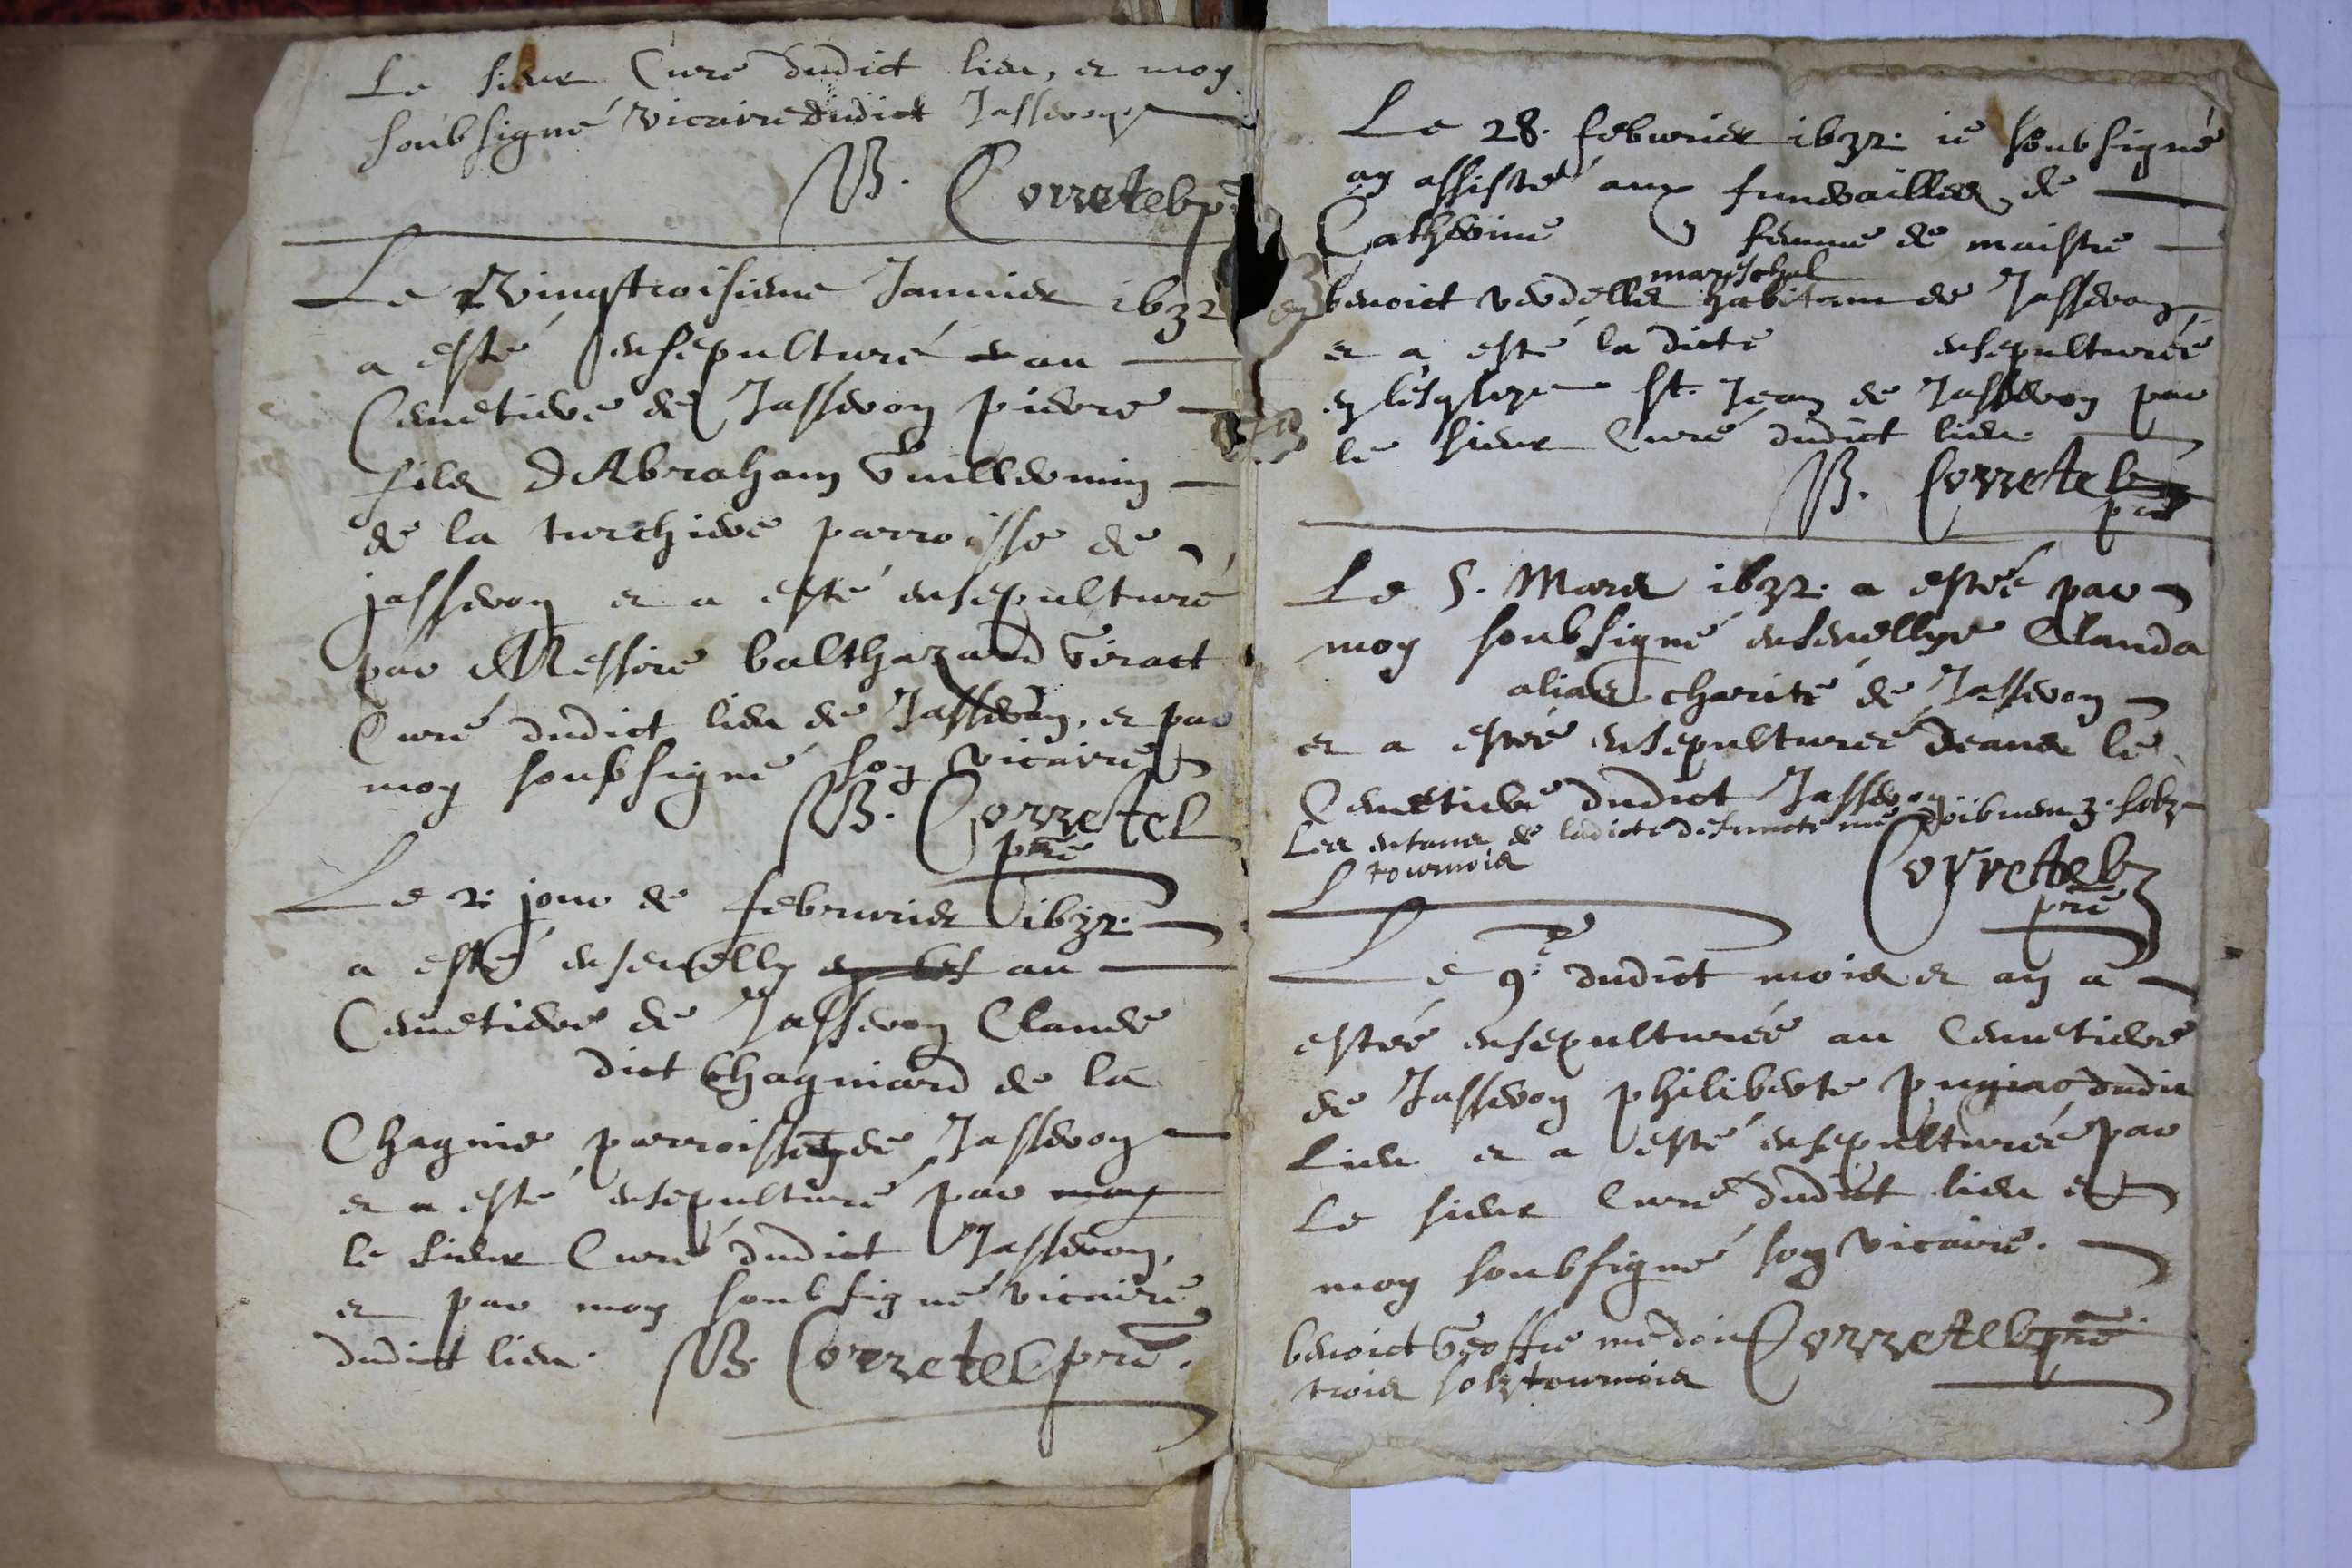 Le sieur Curé dudict lieu, et moy
soubsigné vicaire dudict Jasseron
B. Corretel pre
Le vingtroisieme Januier 1632
a esté ensepulturé au
Cemetiere de Jasseron pierre
filz d'Abraham Vuillermin
de la turchiere parroisse de
jasseron et a esté ensepulturé
par Messire balthazard Viract
Curé dudict lieu de Jasseron, et par
moy soubsigné son vicaire
B. Corretel
pre
Le 2. jour de februrier 1632.
a esté ensevelly au
Cemetiere de Jasseron Claude
dict Chagniard de la
Chagnie parroisse de Jasseron
et a esté ensepulturé par moy
le sieur Curé dudict Jasseron,
et par moy soubsigné vicaire
dudict lieu. B. Corretel pre.
Le 28. feburier 1632. ie soubsigné
ay assisté aux funerailles de
Catherine femme de maistre
mareschal
benoict verdellet habitant de Jasseron
et a esté la dicte ensepulturée
en lesglize St. Jean de Jasseron par
le sieur Curé dudict lieu.
B. Corretel
pre
Le 5. Mars 1632. a estée par
moy soubsigné ensevellye Clauda
alias charité de Jasseron
et a estée ensepulturée deans le
Cemetiere dudict Jasseron
Les enfans de ladicte defuncte me doibuent 3. solz
tournois
Corretel
pre
Le 9e. dudict mois et an a
estée ensepulturée au Cemetiere
de Jasseron philiberte dudit
Lieu et a esté ensepulturée par
Le sieur Curé dudict lieu et
moy soubsigné son vicaire.
benoict Geoffre me doit Corretel pre
trois solz tournois